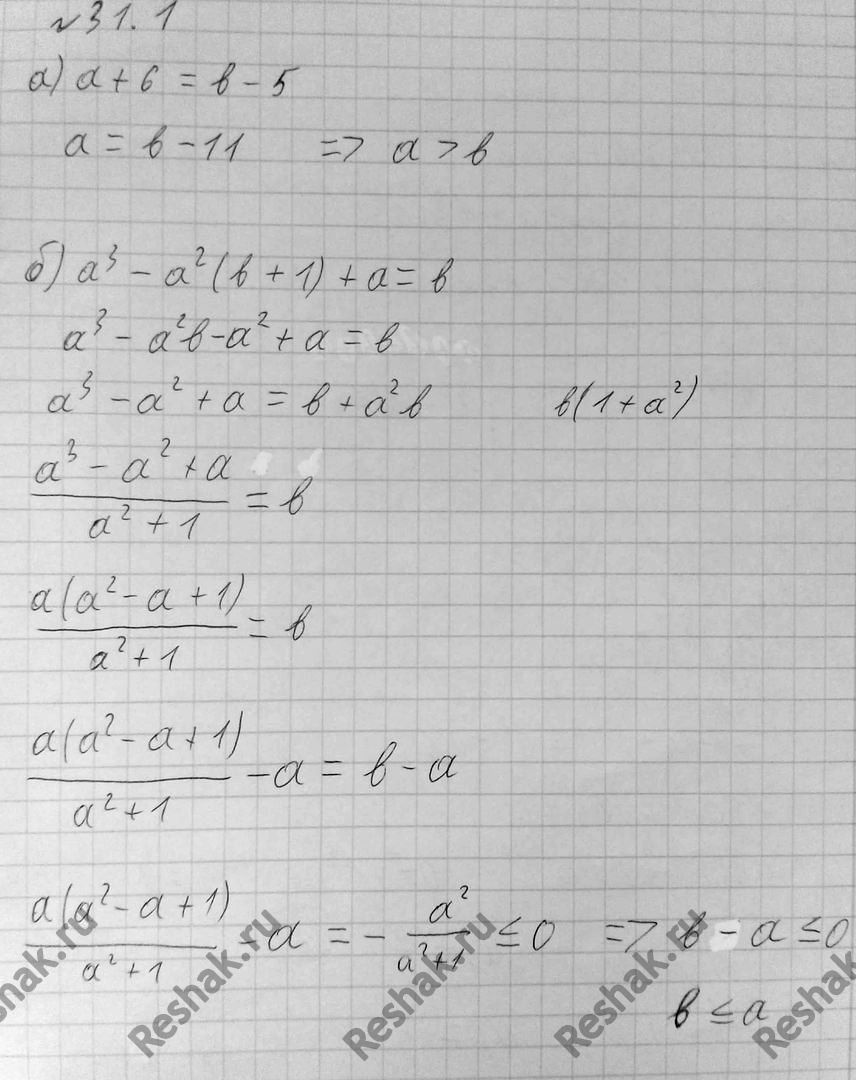 №31.1
а) a + 6 = b - 5
a = b - 11 => a > b
б) a³ - a²(b + 1) + a = b
a³ - a²b - a² + a = b
a³ - a² + a = b + a²b b(1 + a²)
(a³ - a² + a)/(a² + 1) = b
a(a² - a + 1)/(a² + 1) = b
a(a² - a + 1)/(a² + 1) - a = b - a
a(a² - a + 1)/(a² + 1) - a = - a²/(a² + 1) ≤ 0 => b - a ≤ 0
b ≤ a
Reshak.ru Reshak.ru Reshak.ru Reshak.ru